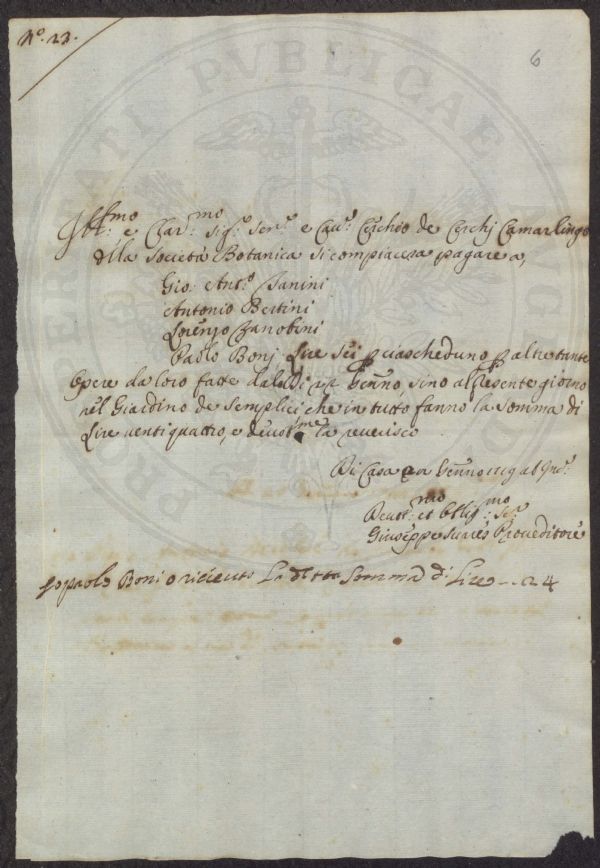 N.º 23.
6
Ill.mo e Clar.mo Sig.r Sen.re e Cau.re Cerchio de Cerchj Camarlingo
della Società Botanica si compiacerà pagare a,
Gio: Ant.º Zanini
Antonio Bertini
Lorenzo Zanobini
Paolo Bonj Lire sei p ciascheduno p altre tante
Opere da loro fatte dal dì Genn.o sino al presente giorno
nel Giardino de Semplici che in tutto fanno la somma di
Lire ventiquattro, e deuot.ime la reuerisco
Di Casa Genn.o
Deuot.mo et Obblig.mo Se.r
Giuseppe Suares Proueditore
Jo paolo Boni o riceuto La detta Somma di Lire - 24